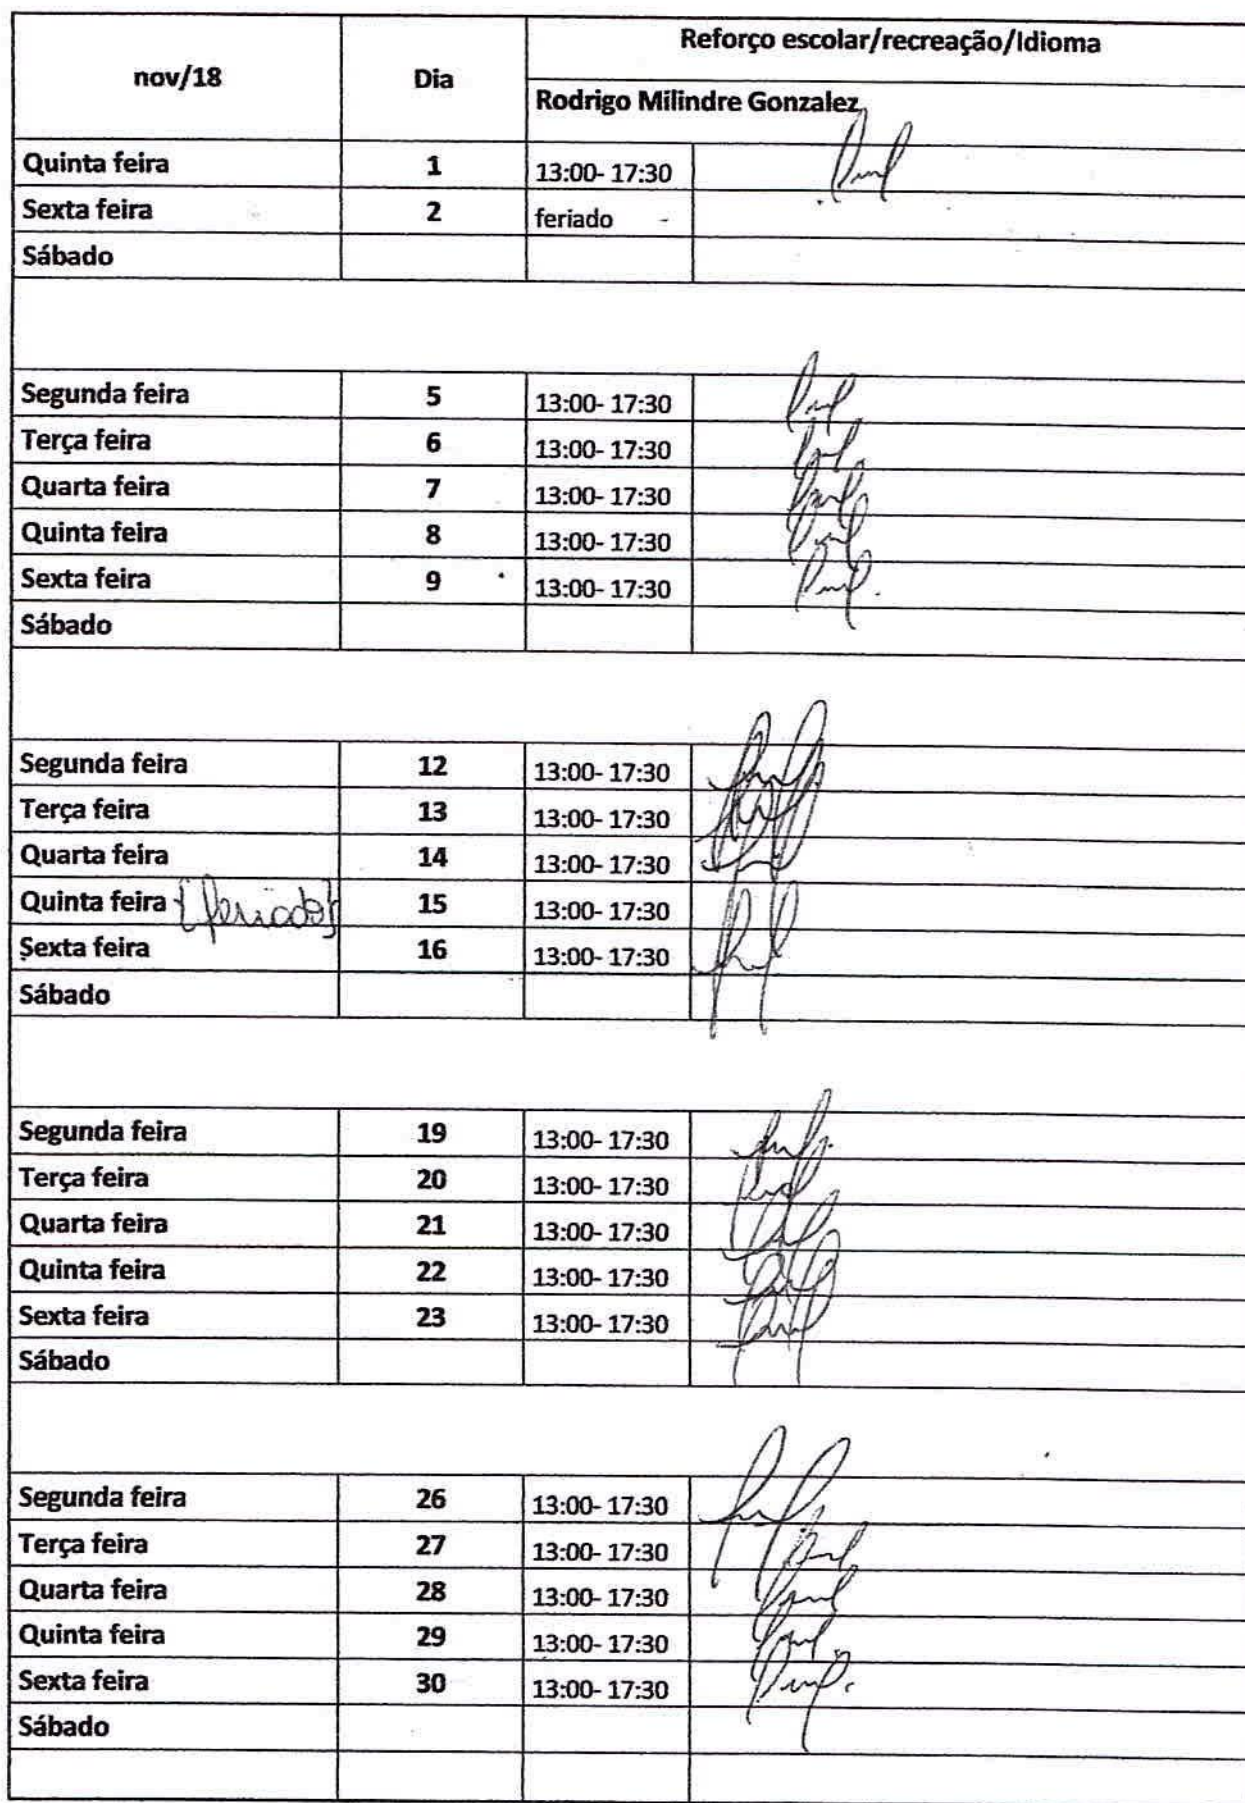 nov/18 Dia Reforço escolar/recreação/Idioma
Rodrigo Milindre Gonzalez
Quinta feira 1 13:00- 17:30
Sexta feira 2 feriado -
Sábado
Segunda feira 5 13:00- 17:30
Terça feira 6 13:00- 17:30
Quarta feira 7 13:00- 17:30
Quinta feira 8 13:00- 17:30
Sexta feira 9 13:00- 17:30
Sábado
Segunda feira 12 13:00- 17:30
Terça feira 13 13:00- 17:30
Quarta feira 14 13:00- 17:30
Quinta feira {feriado} 15 13:00- 17:30
Sexta feira 16 13:00- 17:30
Sábado
Segunda feira 19 13:00- 17:30
Terça feira 20 13:00- 17:30
Quarta feira 21 13:00- 17:30
Quinta feira 22 13:00- 17:30
Sexta feira 23 13:00- 17:30
Sábado
Segunda feira 26 13:00- 17:30
Terça feira 27 13:00- 17:30
Quarta feira 28 13:00- 17:30
Quinta feira 29 13:00- 17:30
Sexta feira 30 13:00- 17:30
Sábado